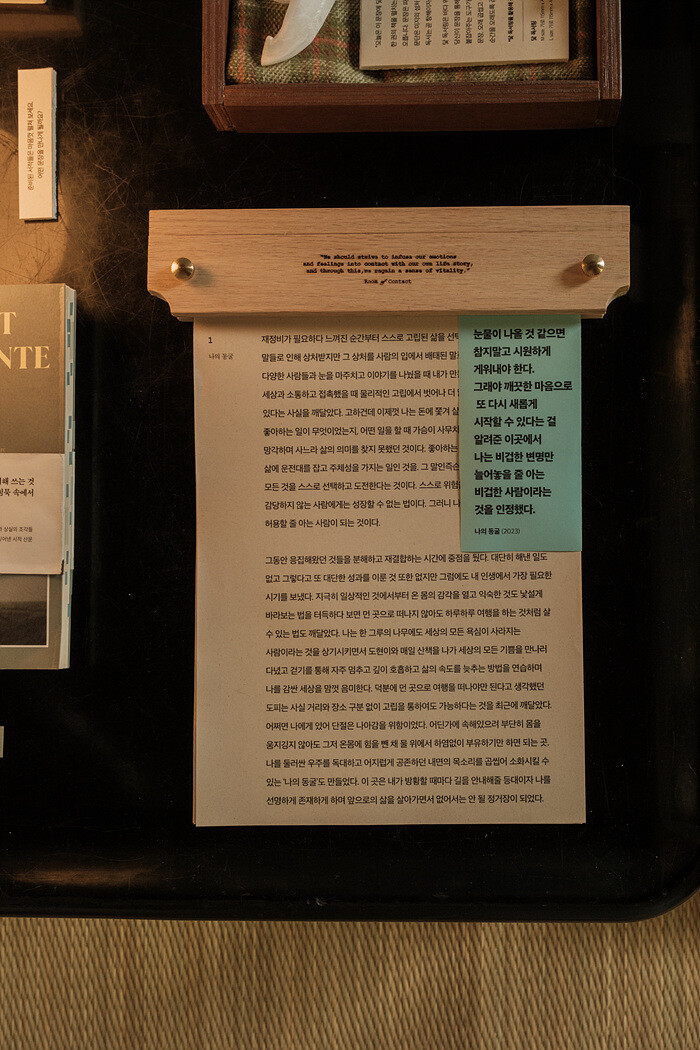 준비된 서적들은 마음껏 펼쳐 보세요.
어떤 문장을 만나게 될까요?
"We should strive to infuse our emotions
and feelings into contact with our own life story,
and through this, we regain a sense of vitality."
Room of Contact
T
NTE
1
나의 동굴
재정비가 필요하다 느껴진 순간부터 스스로 고립된 삶을
말들로 인해 상처받지만 그 상처를 사람의 입에서 배태된
다양한 사람들과 눈을 마주치고 이야기를 나눴을 때 내가
세상과 소통하고 접촉했을 때 물리적인 고립에서 벗어나 더
있다는 사실을 깨달았다. 고하건데 이제껏 나는 돈에 쫓겨
좋아하는 일이 무엇이었는지, 어떤 일을 할 때 가슴이
망각하며 사느라 삶의 의미를 찾지 못했던 것이다. 좋아하는
삶에 운전대를 잡고 주체성을 가지는 일인 것을. 그 말인즉슨
모든 것을 스스로 선택하고 도전한다는 것이다. 스스로
감당하지 않는 사람에게는 성장할 수 없는 법이다. 그러니
허용할 줄 아는 사람이 되는 것이다.
눈물이 나올 것 같으면
참지말고 시원하게
게워내야 한다.
그래야 깨끗한 마음으로
또 다시 새롭게
시작할 수 있다는 걸
알려준 이곳에서
나는 비겁한 변명만
늘어놓을 줄 아는
비겁한 사람이라는
것을 인정했다.
나의 동굴 (2023)
그동안 응집해왔던 것들을 분해하고 재결합하는 시간에 중점을 뒀다. 대단히 해낸 일도
없고 그렇다고 또 대단한 성과를 이룬 것 또한 없지만 그럼에도 내 인생에서 가장 필요한
시기를 보냈다. 지극히 일상적인 것에서부터 온 몸의 감각을 열고 익숙한 것도 낯설게
바라보는 법을 터득하다 보면 먼 곳으로 떠나지 않아도 하루하루 여행을 하는 것처럼 살
수 있는 법도 깨달았다. 나는 한 그루의 나무에도 세상의 모든 욕심이 사라지는
사람이라는 것을 상기시키면서 도현이와 매일 산책을 나가 세상의 모든 기쁨을 만나러
다녔고 걷기를 통해 자주 멈추고 깊이 호흡하고 삶의 속도를 늦추는 방법을 연습하며
나를 감싼 세상을 맘껏 음미한다. 덕분에 먼 곳으로 여행을 떠나야만 된다고 생각했던
도피는 사실 거리와 장소 구분 없이 고립을 통하여도 가능하다는 것을 최근에 깨달았다.
어쩌면 나에게 있어 단절은 나아감을 위함이었다. 어딘가에 속해있으려 부단히 몸을
움직이지 않아도 그저 온몸에 힘을 뺀 채 물 위에서 하염없이 부유하기만 하면 되는 곳.
나를 둘러싼 우주를 독대하고 어지럽게 공존하던 내면의 목소리를 곱씹어 소화시킬 수
있는 '나의 동굴'도 만들었다. 이 곳은 내가 방황할 때마다 길을 안내해줄 등대이자 나를
선명하게 존재하게 하며 앞으로의 삶을 살아가면서 없어서는 안 될 정거장이 되었다.